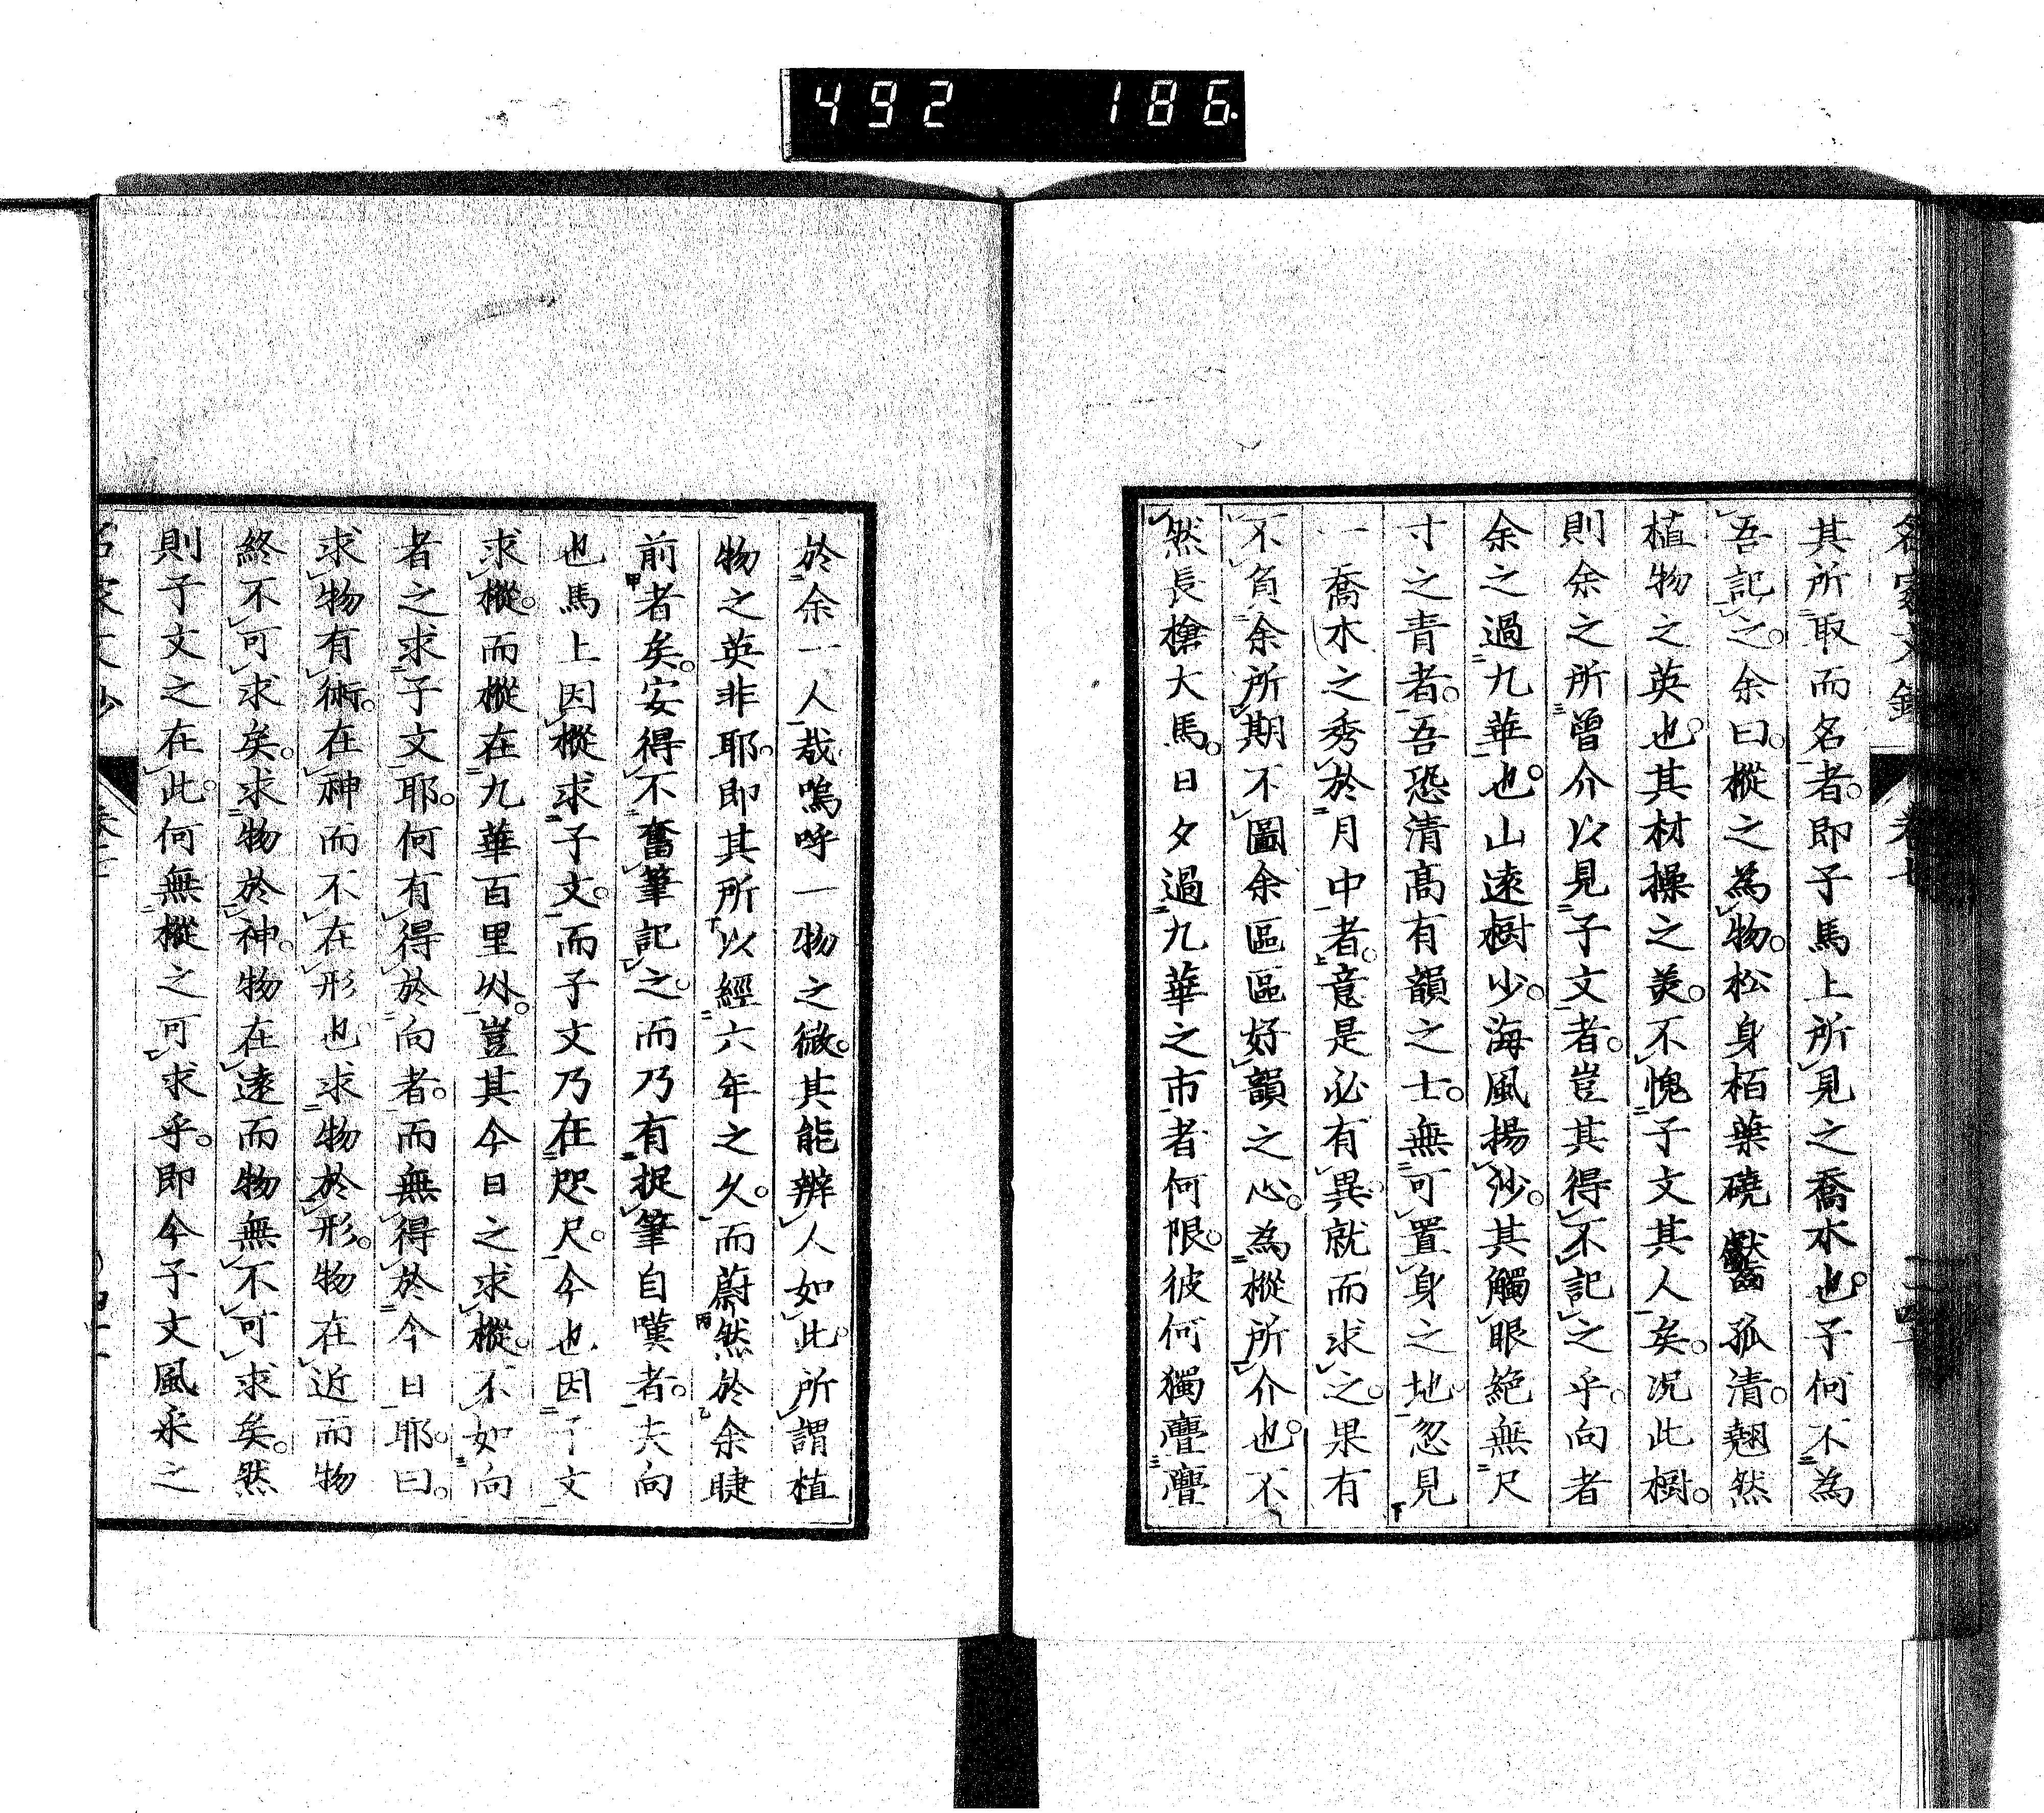 492 186
其所取而名者。即子馬上所見之喬木也。子何不為
吾記之。余曰。樅之為物。松身栢葉磽齾孤清。翹然
植物之英也。其材操之美。不愧子文其人矣。况此樹。
則余之所曾介以見子文者。豈其得不記之乎。向者
余之過九華也。山遠樹少。海風揚沙。其觸眼絕無尺
寸之青者。吾恐清高有韻之士。無可置身之地。忽見
一喬木之秀於月中者。意是必有異。就而求之。果有
不負余所期。不圖余區區好韻之心。為樅所介也。不
然長槍大馬。日夕過九華之市者何限。彼何獨亹亹
於余一人哉嗚呼一物之微。其能辨人如此。所謂植
物之英非耶。即其所以經六年之久。而蔚然於余睫
前者矣。安得不奮筆記之。而乃有捉筆自嘆者。夫向
也馬上因樅求子文。而子文乃在咫尺。今也因子文
求樅。而樅在九華百里外。豈其今日之求樅。不如向
者之求子文耶。何有得於向者。而無得於今日耶。曰。
求物有術。在神而不在形也求物於形。物在近而物
終不可求矣。求物於神。物在遠而物無不可求矣。然
則子文之在此。何無樅之可求乎。即今子文風采之